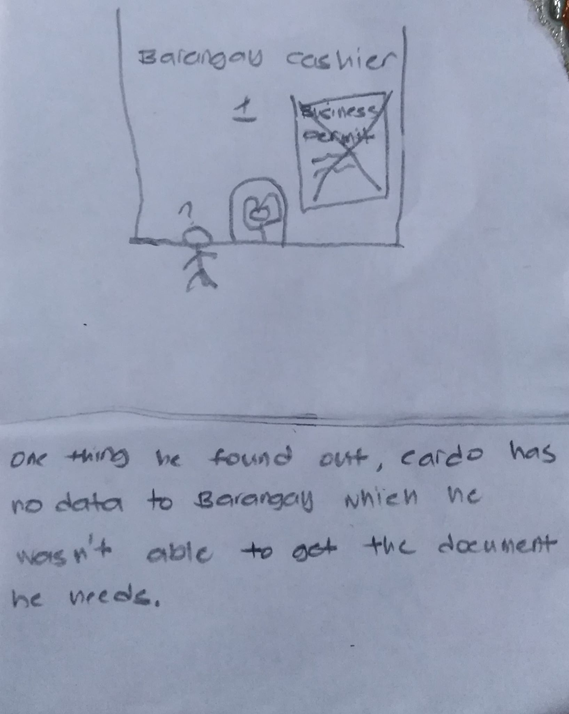 Barangay cashier
1
Business
Permit
?
One thing he found out, cardo has
no data to Barangay which he
wasn't able to get the document
he needs.